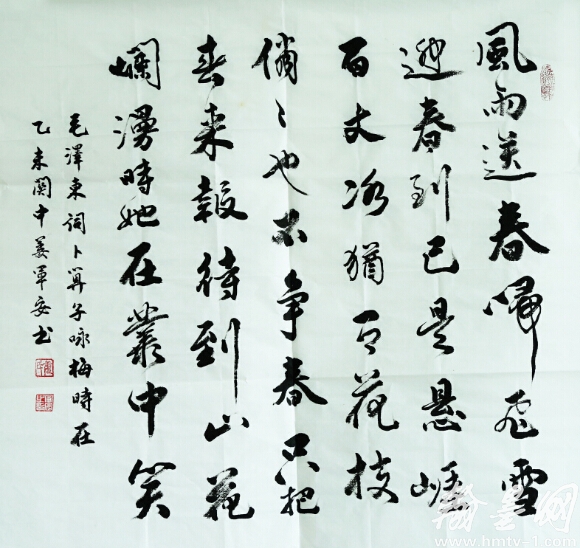 風雨送春歸飛雪
迎春到已是懸崖
百丈冰猶有花枝
俏〻也不争春只把
春来報待到山花
爛漫時她在叢中笑
毛澤東詞卜算子咏梅時在
乙未関中姜軍安书
翰墨网
www.hmtv-1.com